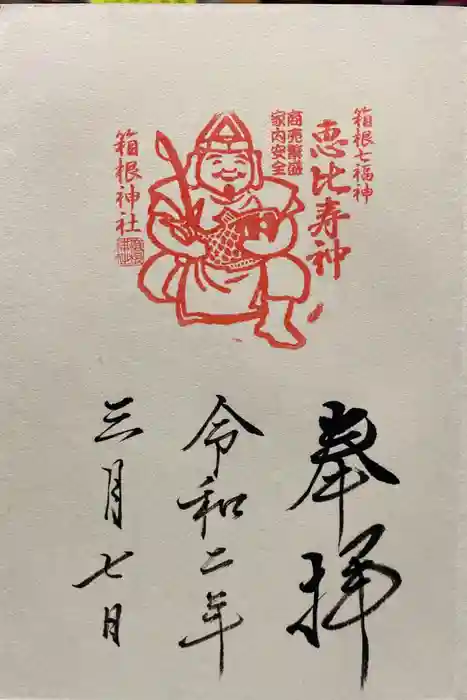 箱根七福神
恵比寿神
商売繁盛
家内安全
箱根神社
奉拝
令和二年
三月七日